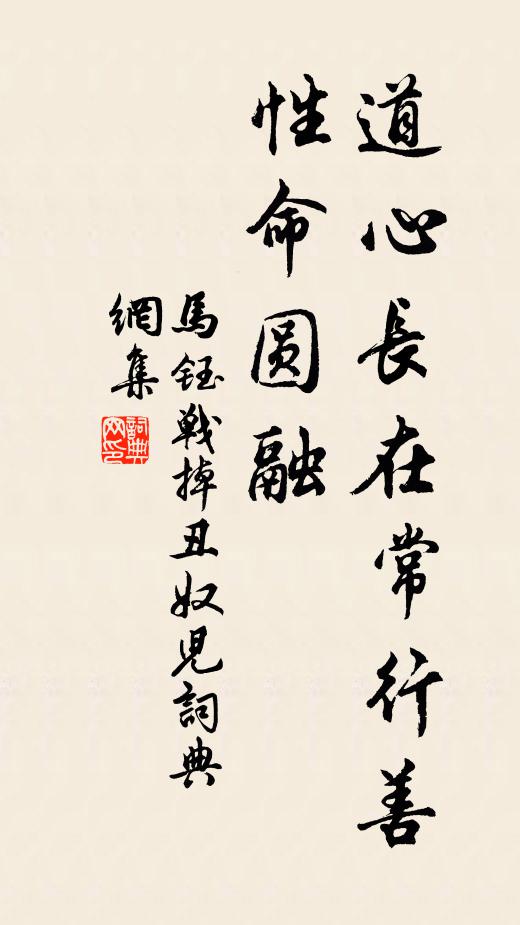 道心長在常行善
性命圆融
馬鈺戰掉丑奴児詞典
網集
詞典
网印